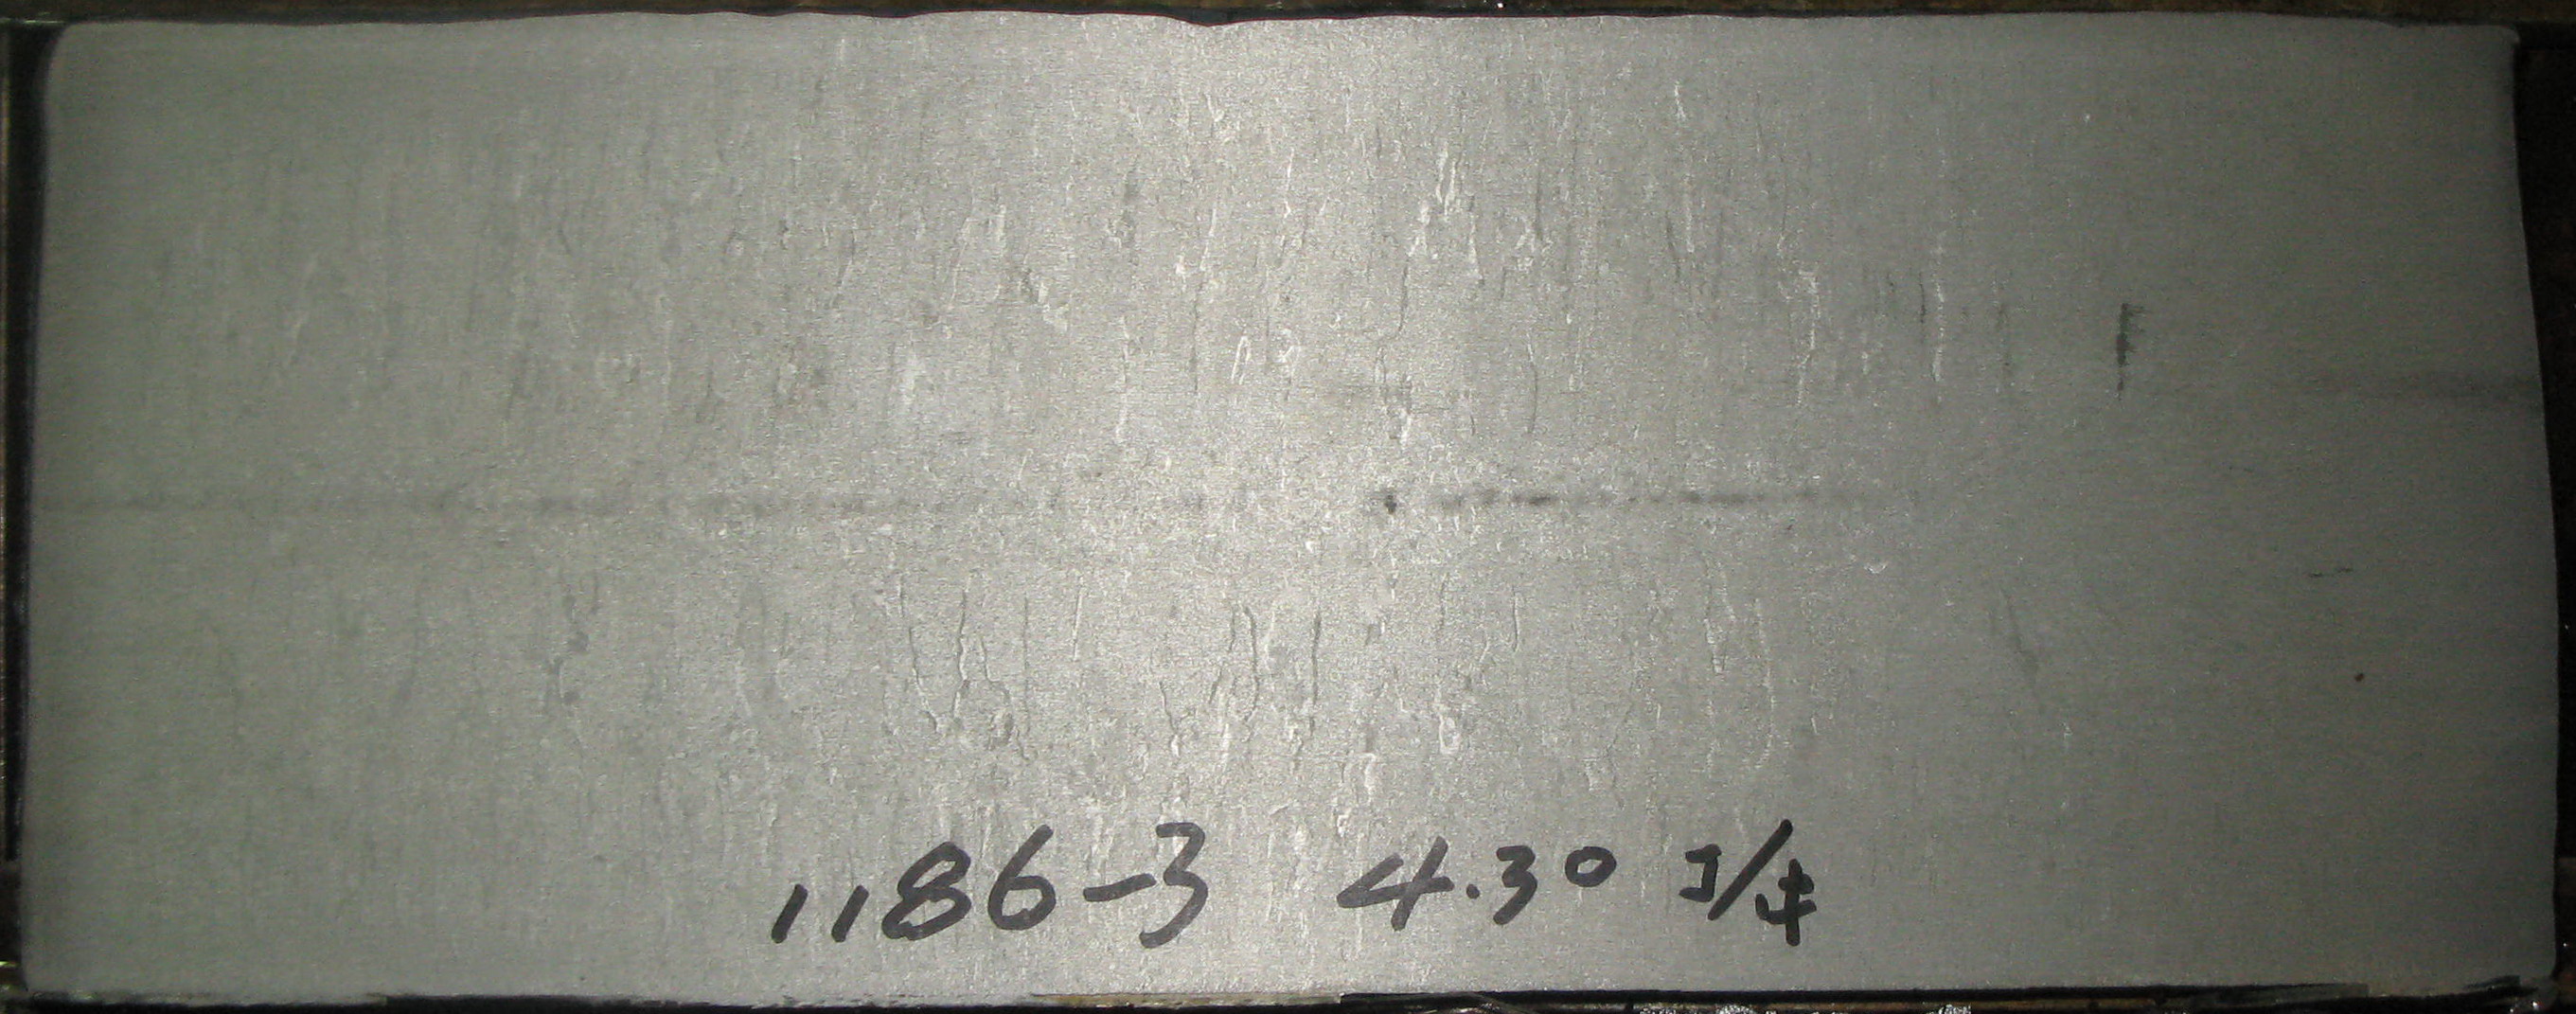 1186-3 4.30